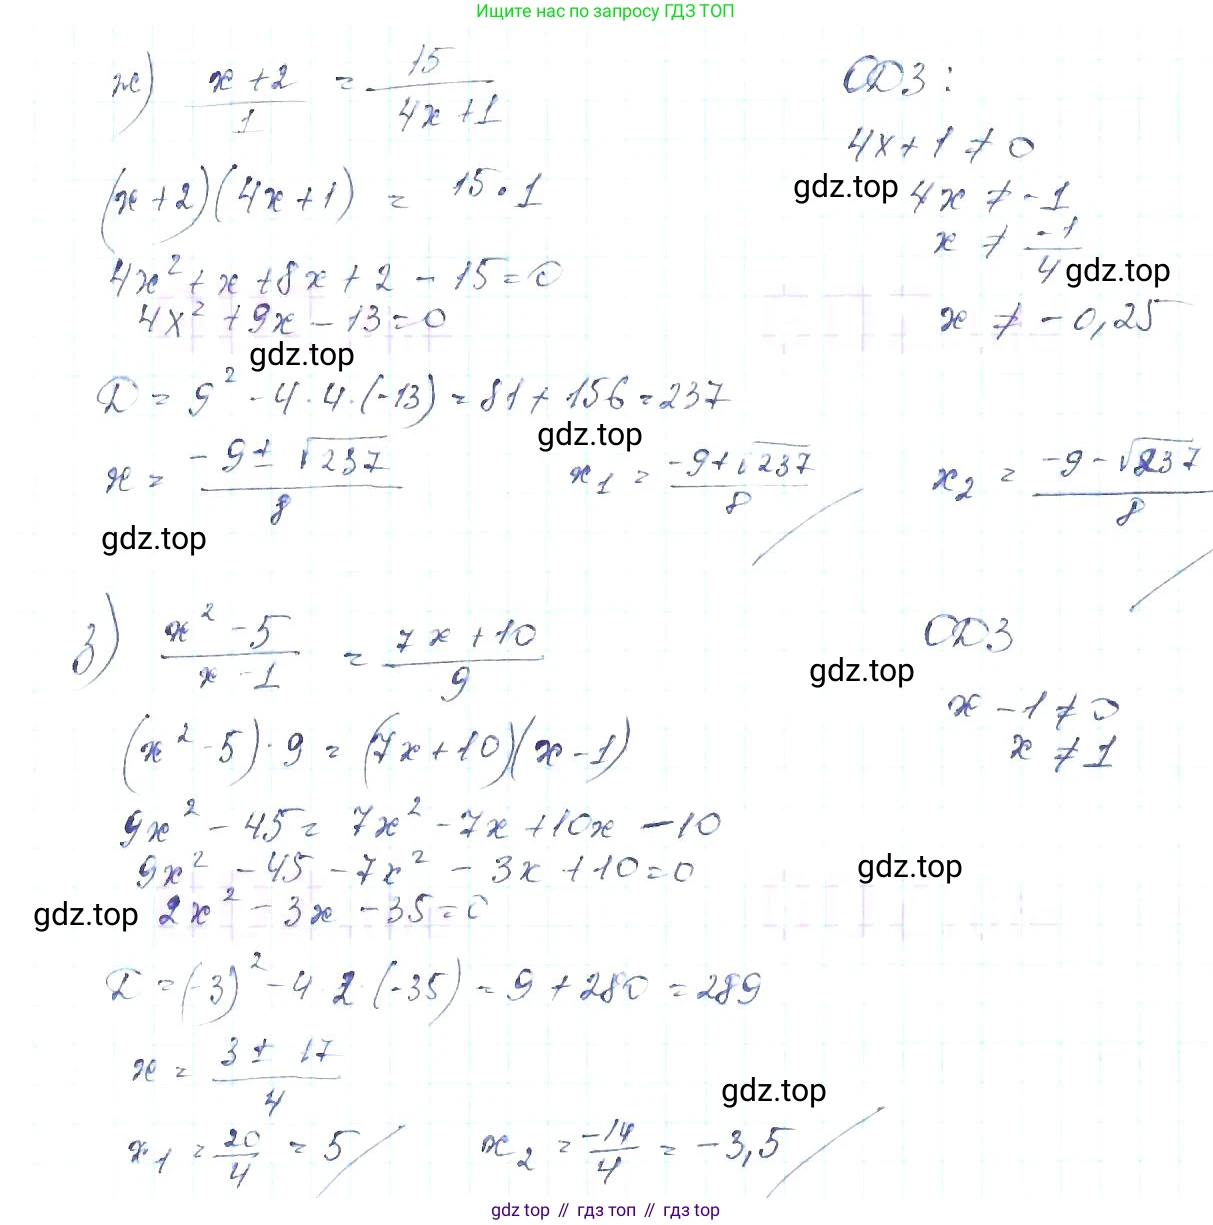 Ищите нас по запросу ГДЗ ТОП
ж) (x+2)/1 = 15/(4x+1)
ОДЗ:
4x+1≠0
gdz.top
4x≠-1
x≠-1/4
gdz.top
x≠-0,25
(x+2)(4x+1) = 15·1
4x²+x+8x+2-15=0
4x²+9x-13=0
gdz.top
D=9²-4·4·(-13)=81+156=237
gdz.top
x=(-9±√237)/8
x₁=(-9+√237)/8
x₂=(-9-√237)/8
gdz.top
з) (x²-5)/(x-1) = (7x+10)/9
ОДЗ
gdz.top
x-1≠0
x≠1
(x²-5)·9=(7x+10)(x-1)
9x²-45=7x²-7x+10x-10
9x²-45-7x²-3x+10=0
gdz.top
gdz.top
2x²-3x-35=0
D=(-3)²-4·2·(-35)=9+280=289
x=(3±17)/4
gdz.top
x₁=20/4=5
x₂=-14/4=-3,5
gdz.top // гдз топ // гдз top